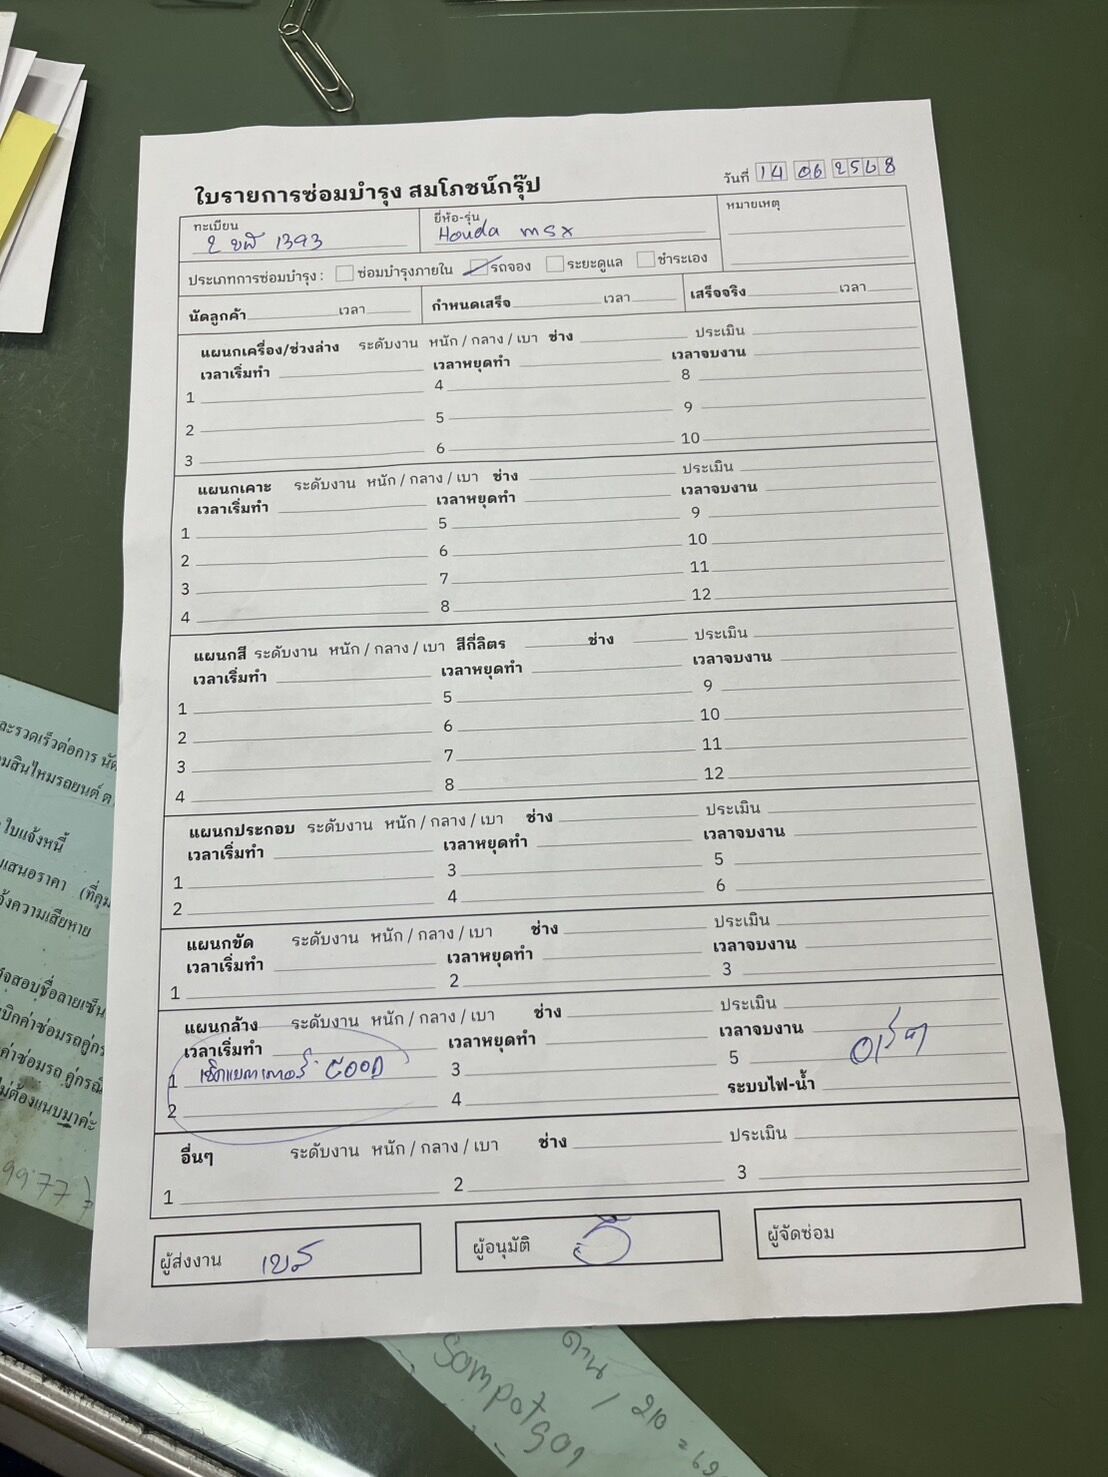 ใบรายการซ่อมบำรุง สมโภชน์กรุ๊ป
วันที่ 14 06 2568
ทะเบียน
1393
ยี่ห้อ-รุ่น
Honda msx
หมายเหตุ
ประเภทการซ่อมบำรุง : ซ่อมบำรุงภายใน รถจอง ระยะดูแล ชำระเอง
นัดลูกค้า เวลา กำหนดเสร็จ เวลา เสร็จจริง เวลา
แผนกเครื่อง/ช่วงล่าง ระดับงาน หนัก / กลาง / เบา ช่าง ประเมิน
เวลาเริ่มทำ เวลาหยุดทำ เวลาจบงาน
1 4 8
2 5 9
3 6 10
แผนกเคาะ ระดับงาน หนัก / กลาง / เบา ช่าง ประเมิน
เวลาเริ่มทำ เวลาหยุดทำ เวลาจบงาน
1 5 9
2 6 10
3 7 11
4 8 12
แผนกสี ระดับงาน หนัก / กลาง / เบา สีกี่ลิตร ช่าง ประเมิน
เวลาเริ่มทำ เวลาหยุดทำ เวลาจบงาน
1 5 9
2 6 10
3 7 11
4 8 12
แผนกประกอบ ระดับงาน หนัก / กลาง / เบา ช่าง ประเมิน
เวลาเริ่มทำ เวลาหยุดทำ เวลาจบงาน
1 3 5
2 4 6
แผนกขัด ระดับงาน หนัก / กลาง / เบา ช่าง ประเมิน
เวลาเริ่มทำ เวลาหยุดทำ เวลาจบงาน
1 2 3
แผนกล้าง ระดับงาน หนัก / กลาง / เบา ช่าง ประเมิน
เวลาเริ่มทำ เวลาหยุดทำ เวลาจบงาน
1 เช็คแบตเตอรี่ GOOD 3 5
2 4 ระบบไฟ-น้ำ
อื่นๆ ระดับงาน หนัก / กลาง / เบา ช่าง ประเมิน
1 2 3
ผู้ส่งงาน
ผู้อนุมัติ
ผู้จัดซ่อม
ละรวดเร็วต่อการ นัด
มสินไหมรถยนต์
ใบแจ้งหนี้
เสนอราคา
จ้งความเสียหาย
จสอบชื่อลายเซ็น
บิกค่าซ่อมรถคู่กร
ค่าซ่อมรถ คู่กรณี
ม่ต้องแนบมาค่ะ
9977
ด้าน / 210
Sompotgor